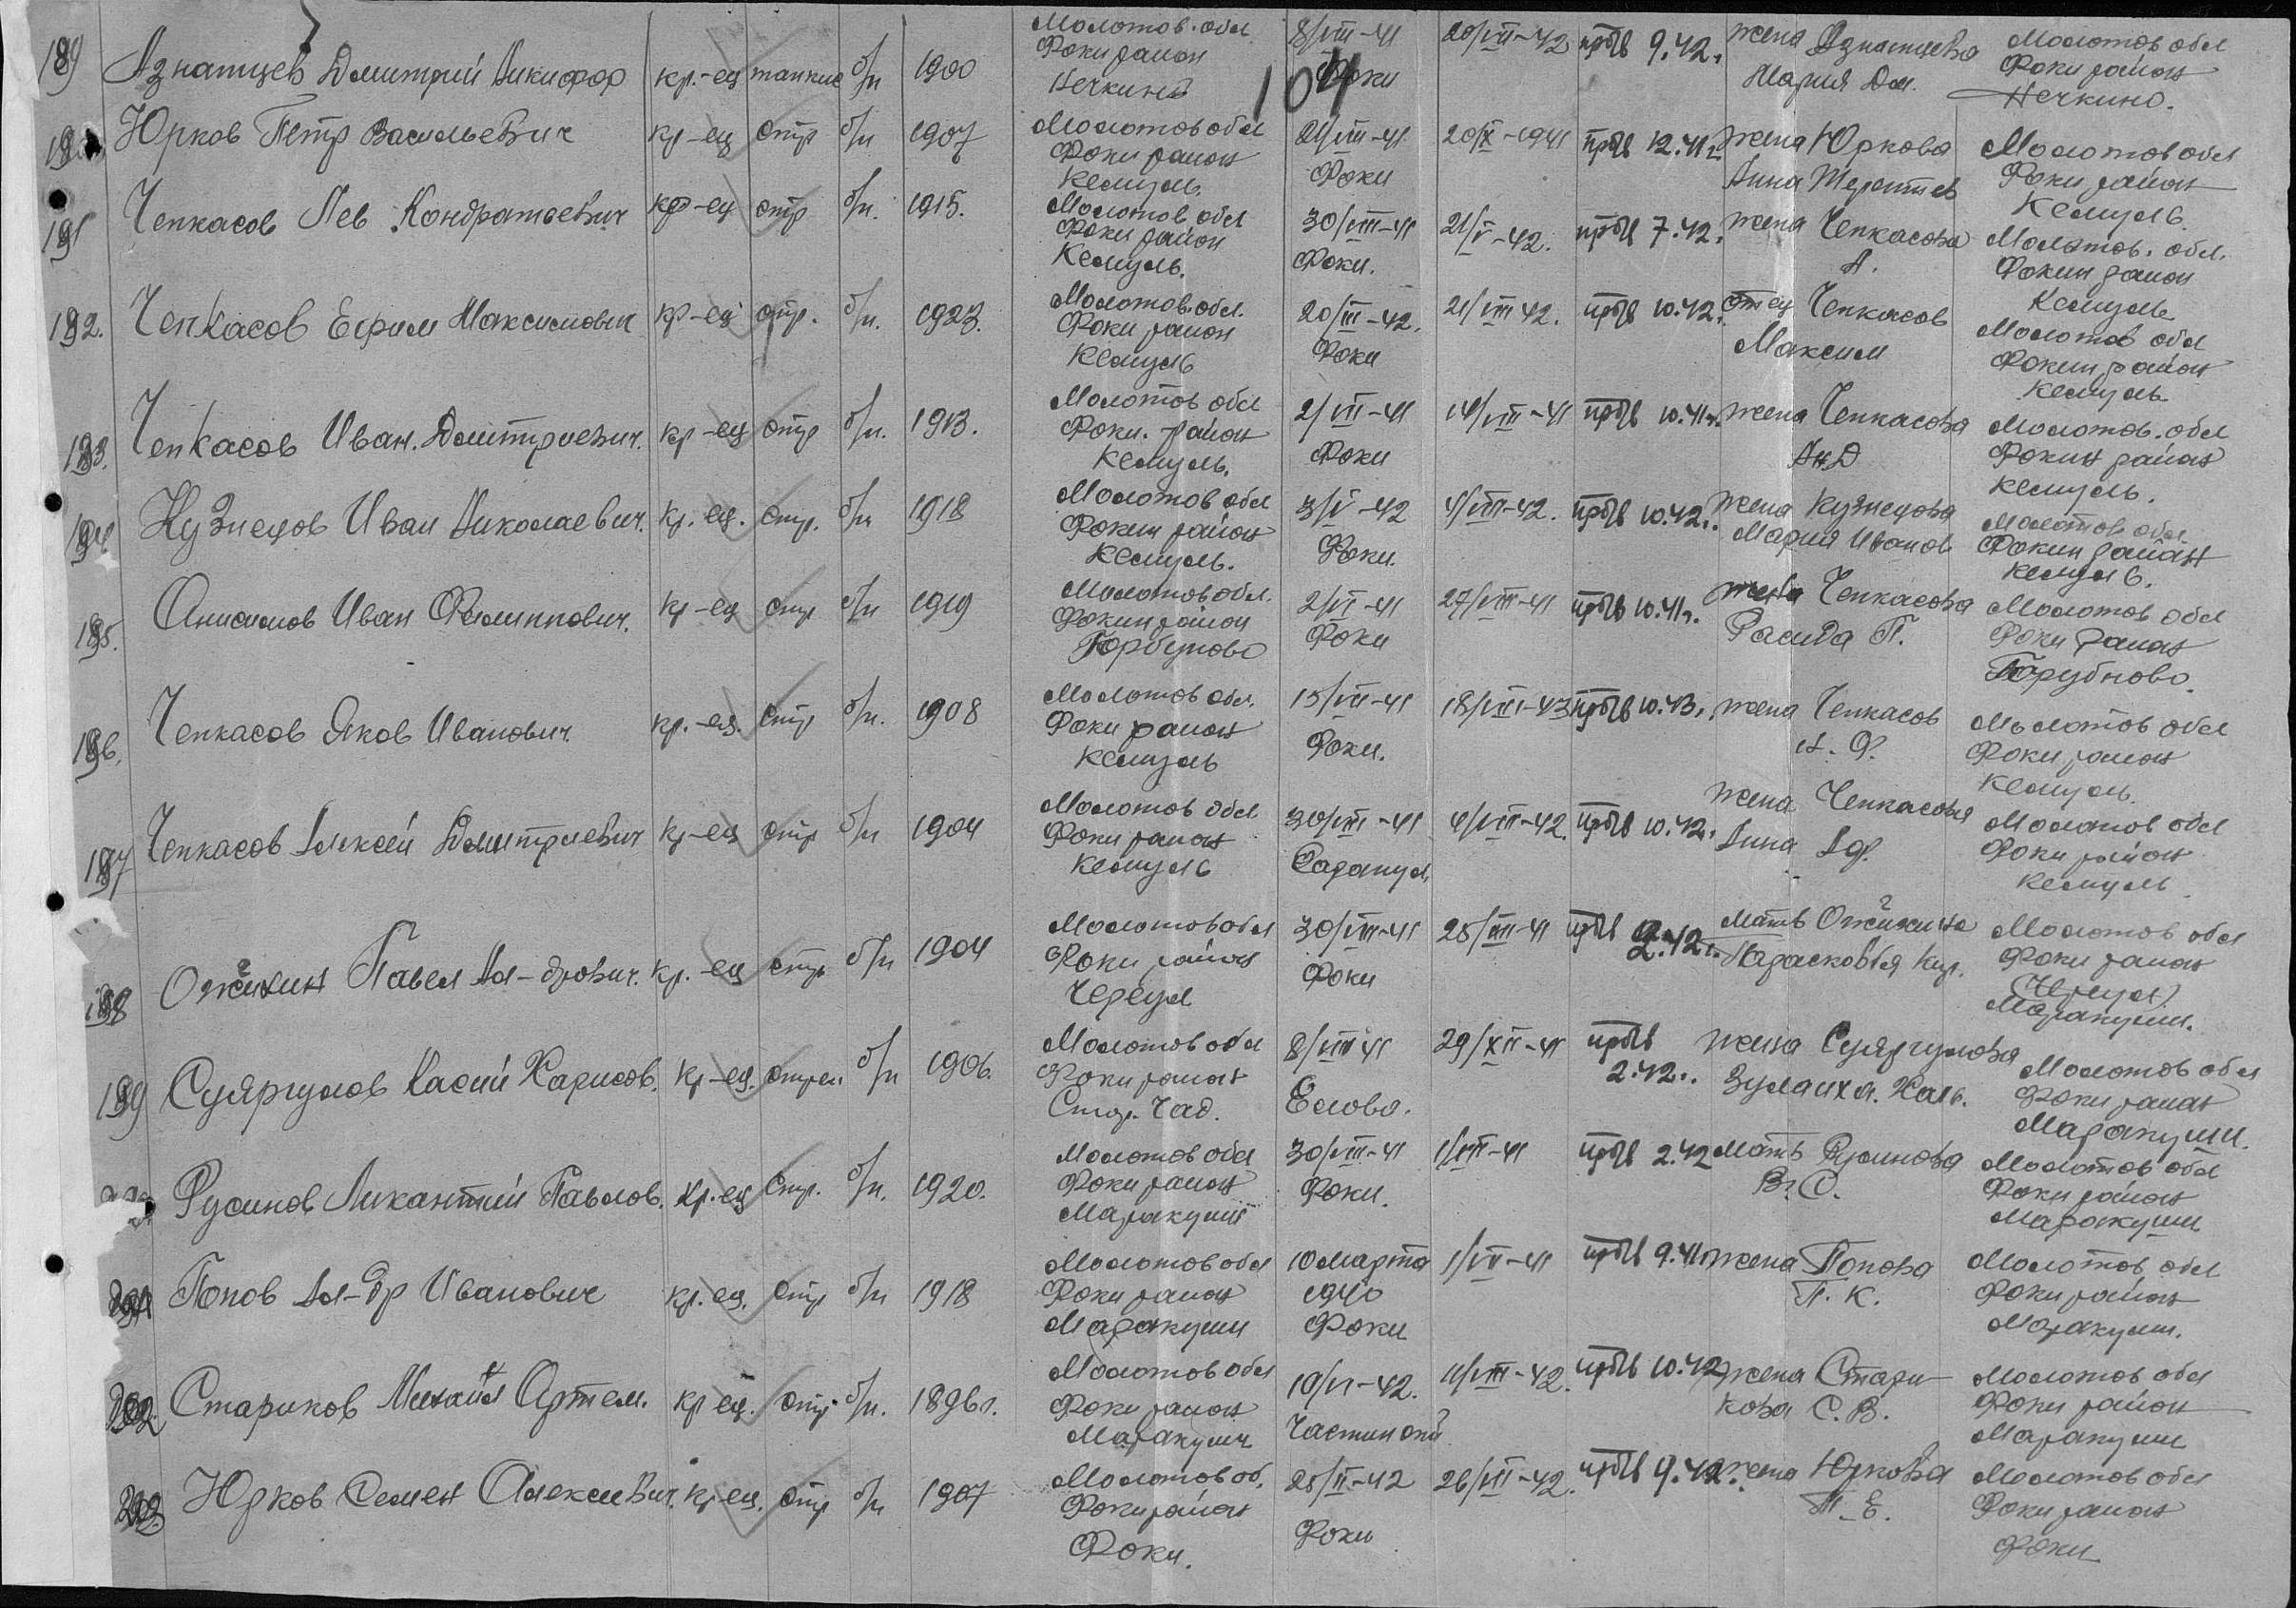 104
189 Азнатцев Дмитрий Никифор кр.-ец танкис б/п 1900 Молотов. обл Фоки район Нечкино 8/VIII-41 Фоки 20/VII-42 прбв 9.42г. жена Азнатцева Мария Дм. Молотов обл Фоки район Нечкино.
190 Юрков Петр Васильевич кр-ец стр б/п 1907 Молотов обл Фоки район Кемуль. 21/VIII-41 Фоки 20/X-1941 прбв 12.41г. жена Юркова Анна Терентьев Молотов обл Фоки район Кемуль.
191 Чепкасов Лев Кондратьевич кр-ец стр б/п. 1915. Молотов обл Фоки район Кемуль. 30/VIII-41 Фоки. 21/V-42. прбв 7.42. жена Чепкасова А. Молотов. обл. Фокин район Кемуль
192. Чепкасов Ефрим Максимович кр-ец стр. б/п. 1923. Молотов. обл. Фоки район Кемуль 20/III-42. Фоки 21/VIII 42. прбв 10.42. отец Чепкасов Максим Молотов обл Фокин район Кемуль
193. Чепкасов Иван. Дмитриевич. кр-ец стр б/п. 1913. Молотов обл Фоки. район Кемуль. 2/VII-41 Фоки 14/VIII-41 прбв 10.41г. жена Чепкасова Ан.Д Молотов. обл Фокин район Кемуль.
194 Кузнецов Иван Николаевич. кр.-ец. стр. б/п 1918 Молотов обл Фокин район Кемуль. 3/V-42 Фоки. 4/VIII-42. прбв 10.42г. жена Кузнецова Мария Иванов Молотов обл. Фокин район Кемуль.
195. Анисимов Иван Филиппович. кр-ец стр б/п 1919 Молотов обл. Фокин район Горбуново 2/VI-41 Фоки 27/VIII-41 прбв 10.41г. жена Чепкасова П. Молотов обл Фоки район
196. Чепкасов Яков Иванович. кр.-ец. стр б/п. 1908 Молотов обл. Фоки район Кемуль 15/VII-41 Фоки. 18/VIII-43 прбв 10.43. жена Чепкасов Ф. Молотов обл Фоки район Кемуль.
197 Чепкасов Алексей Дмитриевич кр-ец стр б/п 1904 Молотов обл Фоки район Кемуль 30/VIII-41 Сарапул. 4/VIII-42. прбв 10.42г. жена Чепкасова Анна Аф. Молотов обл Фоки район Кемуль
198 Ожгихин Павел Ал-дрович. кр.-ец стр б/п 1904 Молотов обл Фоки район Череул 30/VIII-41 Фоки 25/XII-41 прбв 2.42г. мать Ожгихина Парасковья Кир. Молотов обл Фоки район (Череул) Маракуши.
199 Суяргулов Касий Харисов. кр-ец. стрел б/п 1906. Молотов обл Фоки район Стар. Чад. 8/VIII 41 Елово. 29/XII-41 прбв 2.42г. жена Суяргулова Зулайха. Халь. Молотов обл Фоки район Маракуши.
200 Русинов Ликантий Павлов. кр.-ец стр. б/п. 1920. Молотов обл Фоки район Маракуши 30/VIII-41 Фоки. прбв 2.42 мать Русинова В.С. Молотов обл Фоки район Маракуши
201 Попов Ал-др Иванович кр.-ец. стр б/п 1918 Молотов обл Фоки район Маракуши 10 марта 1940 Фоки 1/VII-41 прбв 9.41г жена Попова П. К. Молотов обл Фоки район Маракуши.
202 Стариков Михаил Артем. кр-ец. стр б/п. 1896г. Молотов обл Фоки район Маракуши 10/VI-42. 11/VIII-42. прбв 10.42 жена Старикова С. В. Молотов обл Фоки район Маракуши
203. Юрков Семен Алексеевич. кр-ец. стр б/п 1907 Молотов об. Фоки район Фоки. 25/II-42 Фоки 26/VII-42. прбв 9.42г. жена Юркова Т. Е. Молотов обл Фоки район Фоки